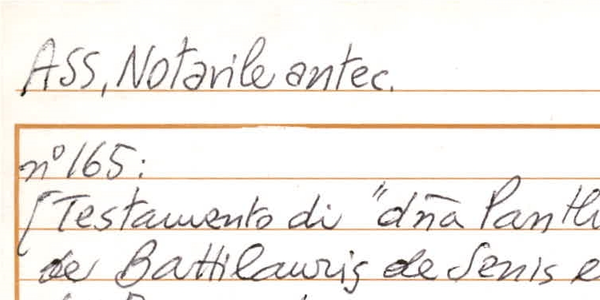 ASS, Notarile antec.
n° 165:
[Testamento di "dña Panth
de Battilauris de Senis e